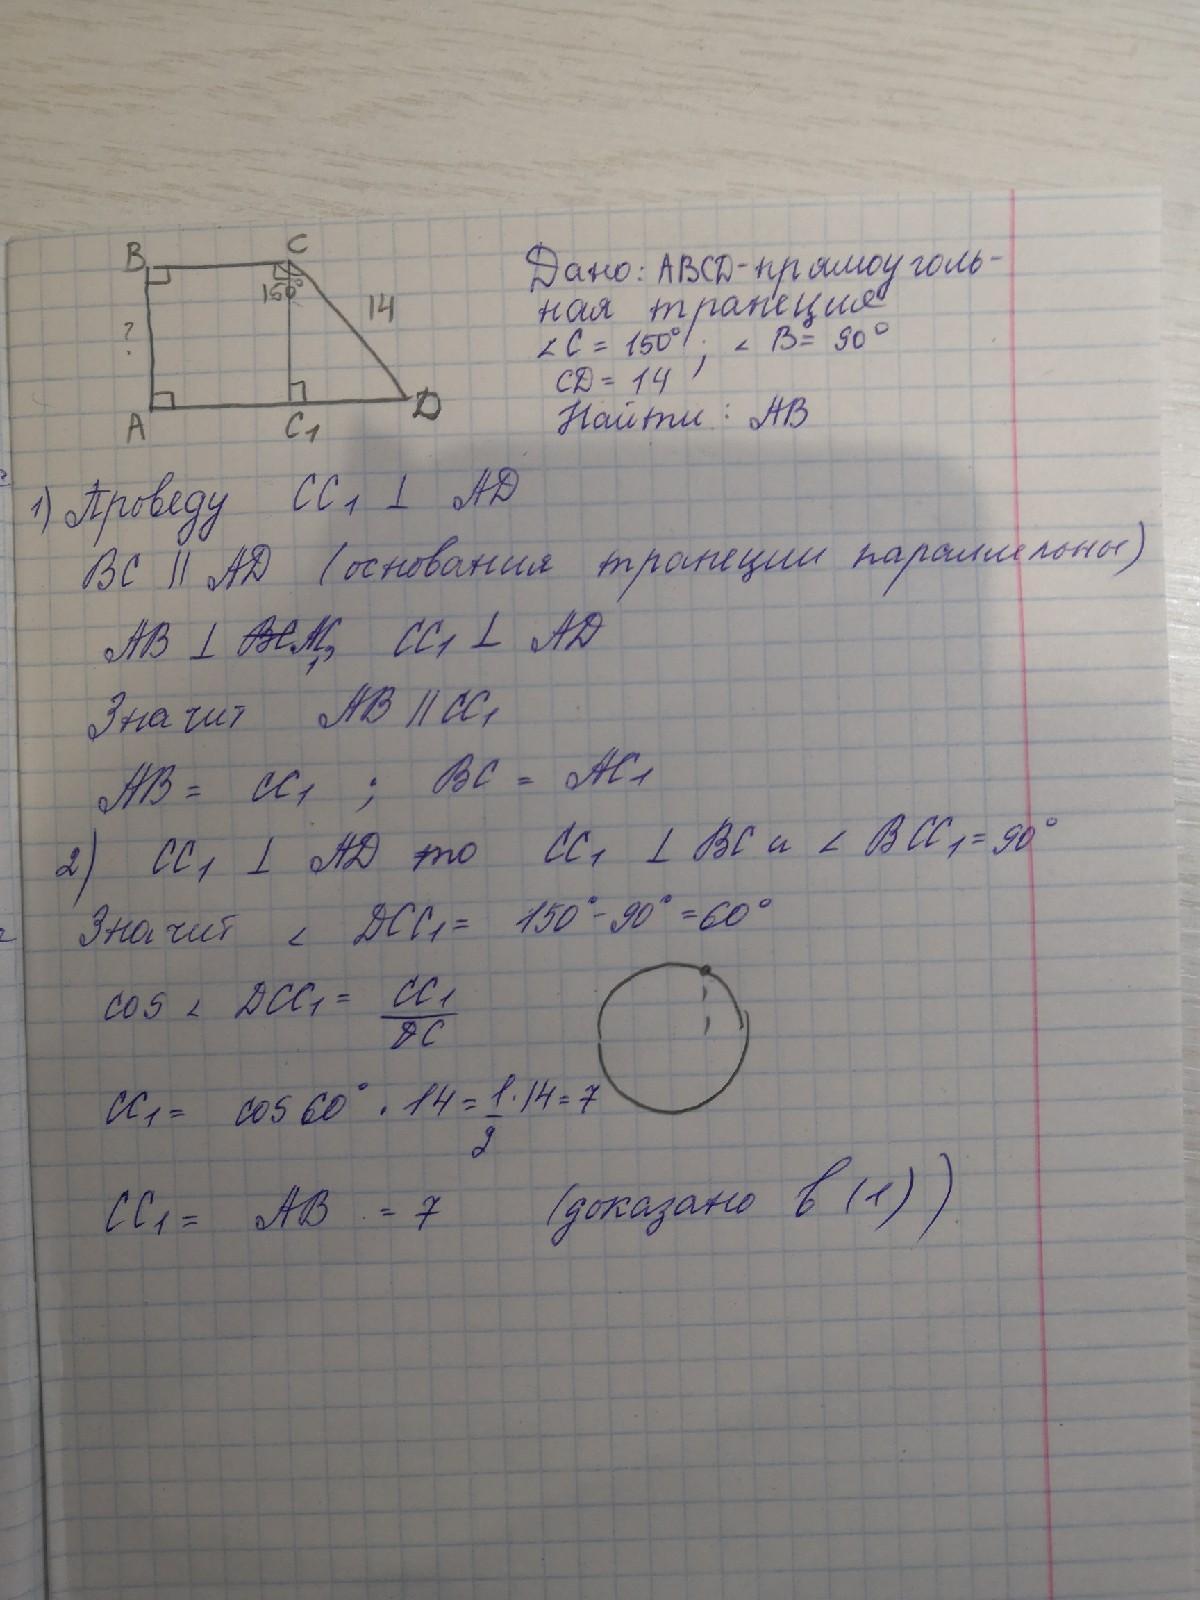 B
C
150°
14
?
A
C1
D
Дано: ABCD-прямоуголь-
ная трапеция
∠C = 150°; ∠B = 90°
CD = 14
Найти: AB
1) Проведу CC1 ⊥ AD
BC || AD (основания трапеции параллельны)
AB ⊥ CC1 ⊥ AD
Значит AB || CC1
AB = CC1 ; BC = AC1
2) CC1 ⊥ AD то CC1 ⊥ BC и ∠BCC1 = 90°
Значит ∠DCC1 = 150° - 90° = 60°
cos ∠DCC1 = CC1/DC
CC1 = cos 60° · 14 = 1/2 · 14 = 7
CC1 = AB = 7 (доказано в (1))